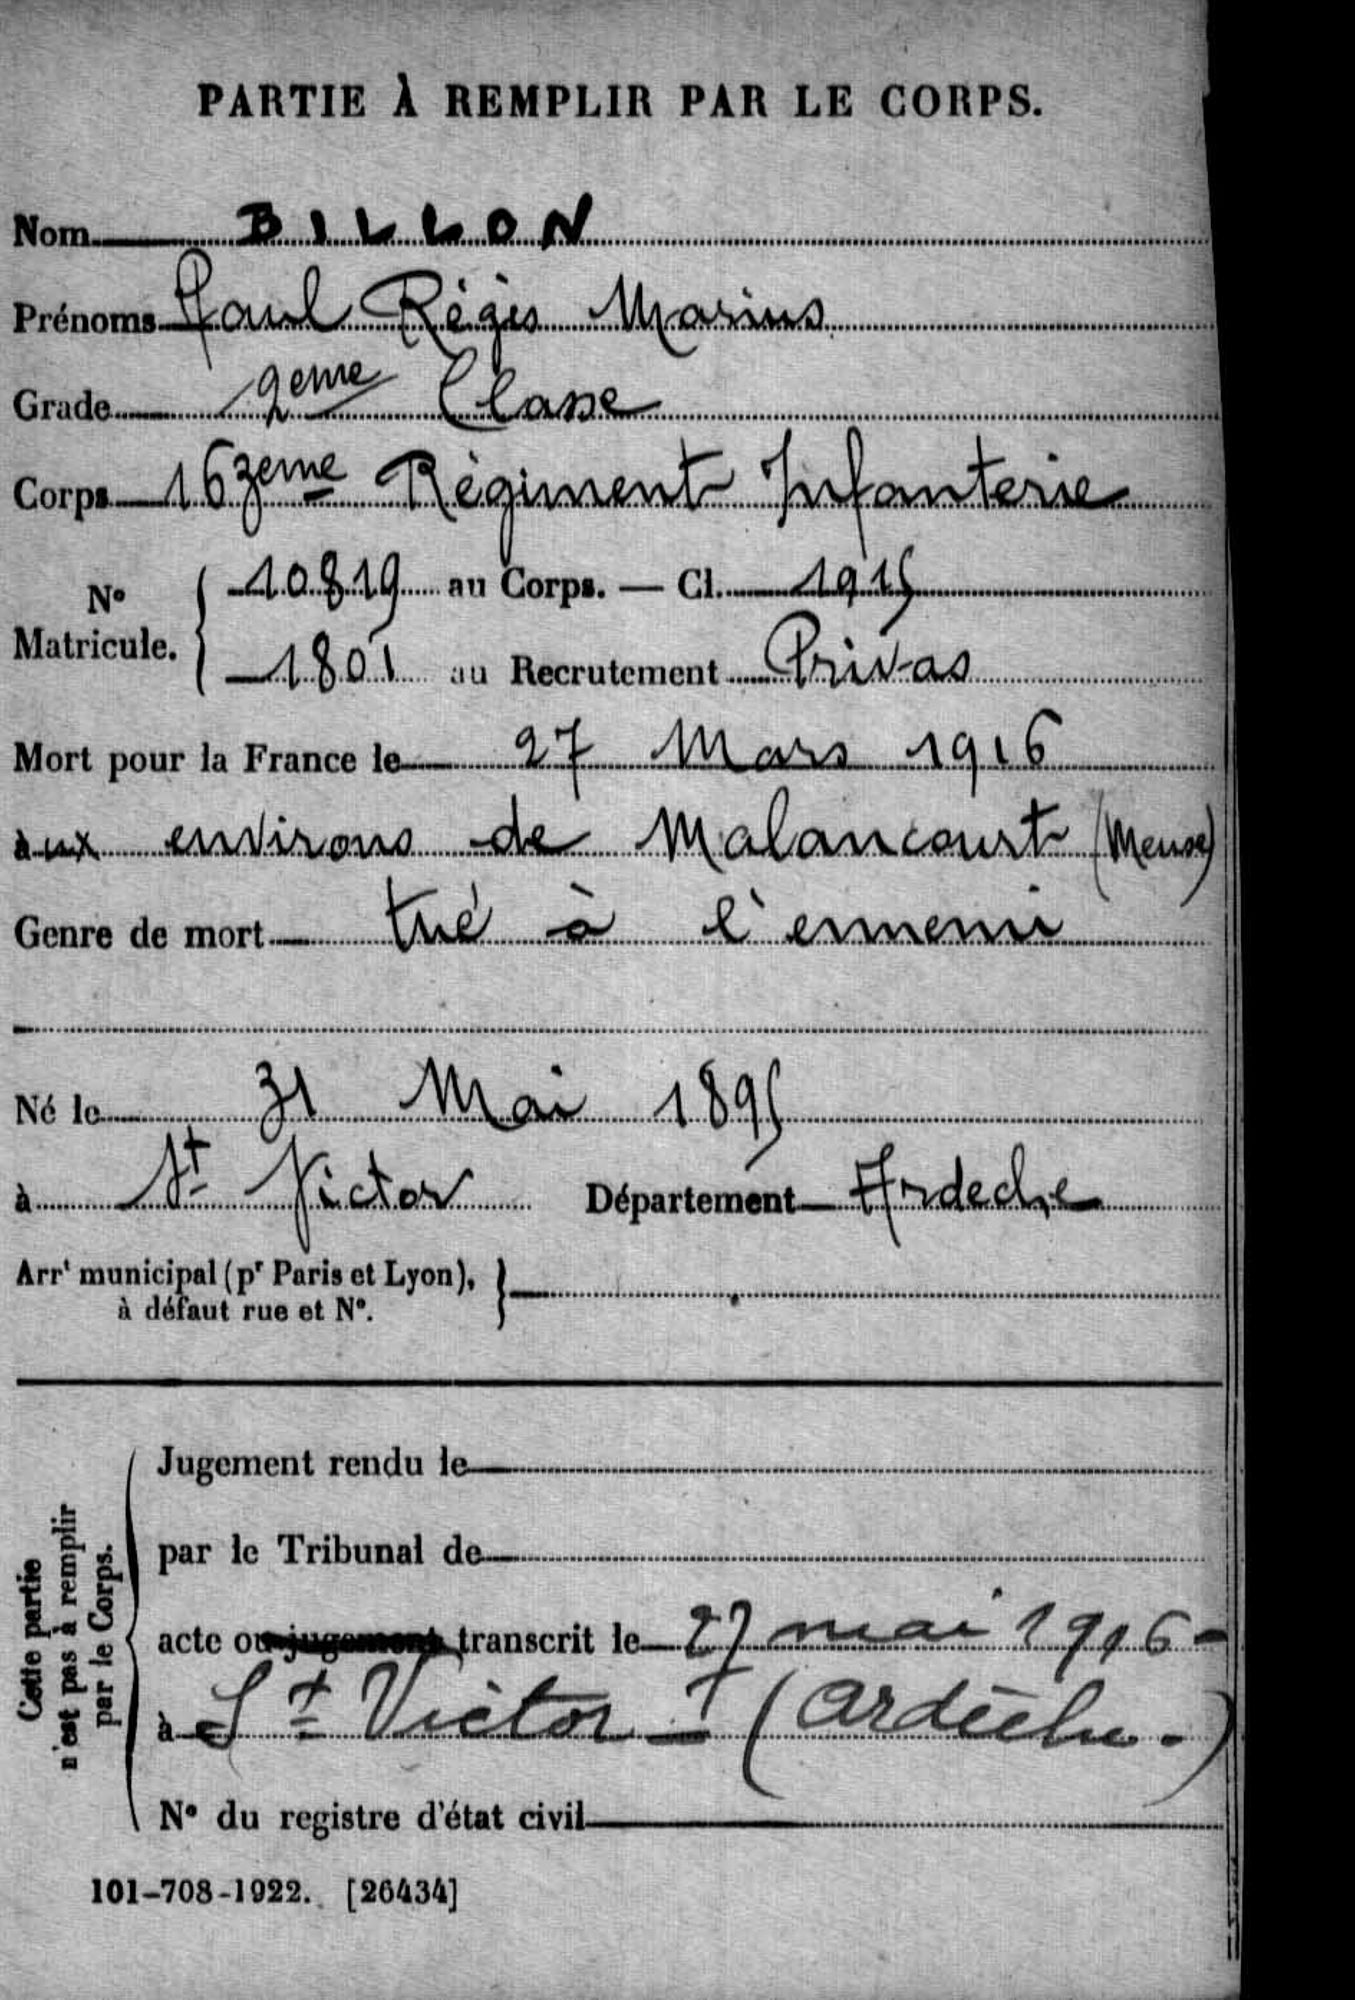 PARTIE À REMPLIR PAR LE CORPS.
Nom BILLON
Prénoms Paul Régis Marius
Grade 2eme Classe
Corps 163eme Régiment Infanterie
N° Matricule. { 10819 au Corps. — Cl. 1915
1801 au Recrutement Privas
Mort pour la France le 27 Mars 1916
àux environs de Malancourt (Meuse)
Genre de mort tué à l'ennemi
Né le 31 Mai 1895
à St Victor Département Ardeche
Arrt municipal (pr Paris et Lyon),
à défaut rue et N°.
Cette partie
n'est pas à remplir
par le Corps.
Jugement rendu le
par le Tribunal de
acte ou jugement transcrit le 27 mai 1916 -
à St Victor - (Ardèche -)
N° du registre d'état civil
101-708-1922. [26434]